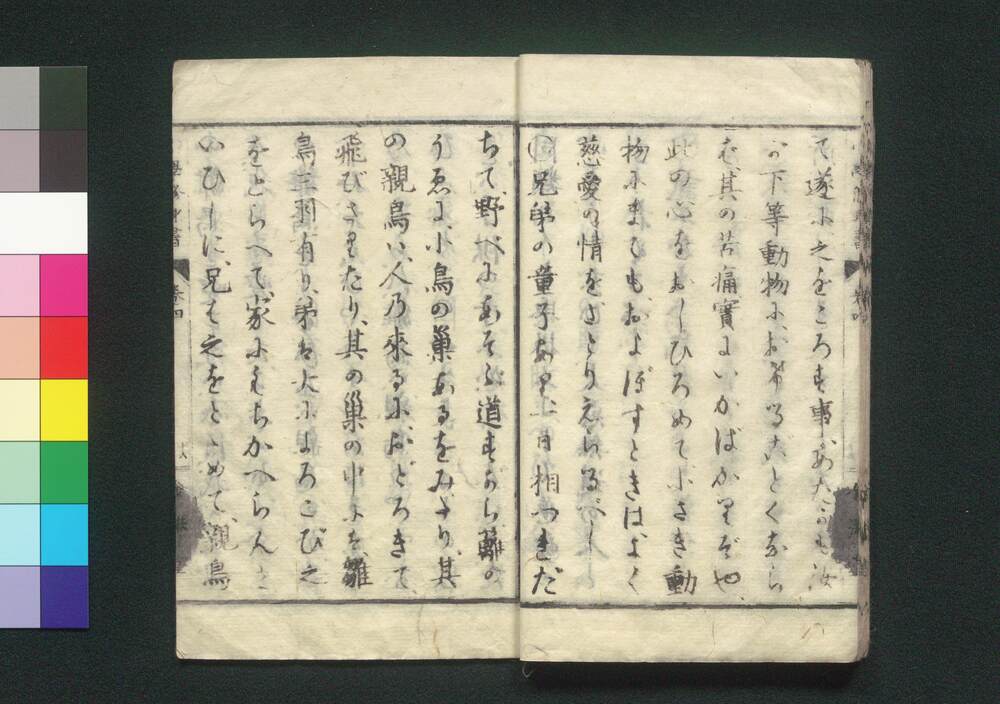 て遂に之をころす事あたかも汝
が下等動物に於けるごとくなら
ば其の苦痛實にいかばかりぞや
此の心をおしひろめて小さき動
物にまでもおよぼすときはよく
慈愛の情をさとりえらるべし
○兄弟の童子あり、一日相つれだ
ちて、野べにあそぶ道すがら籬の
うゑに、小鳥の巣あるをみたり、其
の親鳥ハ、人乃來るに、おどろきて
飛びさりたり、其の巣の中には、雛
鳥三羽有り、弟は大によろこび之
をとらへて、家にもちかへらんと
いひしに、兄は之をとゞめて、親鳥